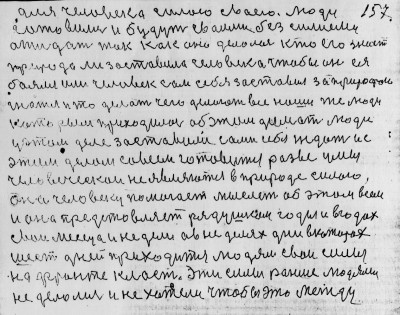 для человека силою своего. Люди 157.
готовили и будут своими без силием
ожидат так как оно делалос кто его знает
природа ли заставила человека чтобы он ея
боялся или человек сам себя заставил за природою
гнатся что делат чего делают все наши же люди
которым приходилос об этом думат люди
у этом деле заставили сами себя ждат и с
этим делом совсем готовится разве цели
человеческой не являются в природе силою,
она человеку помогает мыслет об этом всем
и она представляет рядушком годы и в годах
свои месяца и недели а в неделях дни в которых
шест дней приходится людям свои силы
на фронте класт. Эти силы раньше людями
не делалис и не хотели чтобы это между